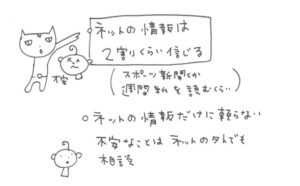 ○ネットの情報は
2割りくらい信じる
(スポーツ新聞とか
週間誌を読むくらい)
不安
○ネットの情報だけに頼らない
不安なことはネットの外でも
相談